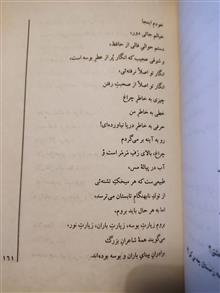 خودم اینجا
خیالم جائی دور،
دستم حوالی فالی از حافظ،
و شوقی عجیب که انگار پُر از عطرِ بوسه است،
انگار تو اصلاً نرفته‌ئی،
انگار تو اصلاً از صحبتِ رفتن
چیزی به خاطرِ چراغ
خطی به خاطرِ من
حرفی به خاطرِ دریا نیاورده‌ای!
رو به آینه بر می‌گردم
چراغ، بالای زهابِ مَرمَر است و
آب در پیالهٔ مس،
طبیعی‌ست که هر میخکِ تشنه‌ئی
از توفِ نابهنگامِ تابستان می‌ترسد،
اما به هر حال باید بروم،
بروم زیارتِ بوسه، زیارتِ باران، زیارتِ نور،
می‌گویند همهٔ شاعرانِ بزرگ
برادرانِ بینای باران و بوسه بوده‌اند.
۱۶۱